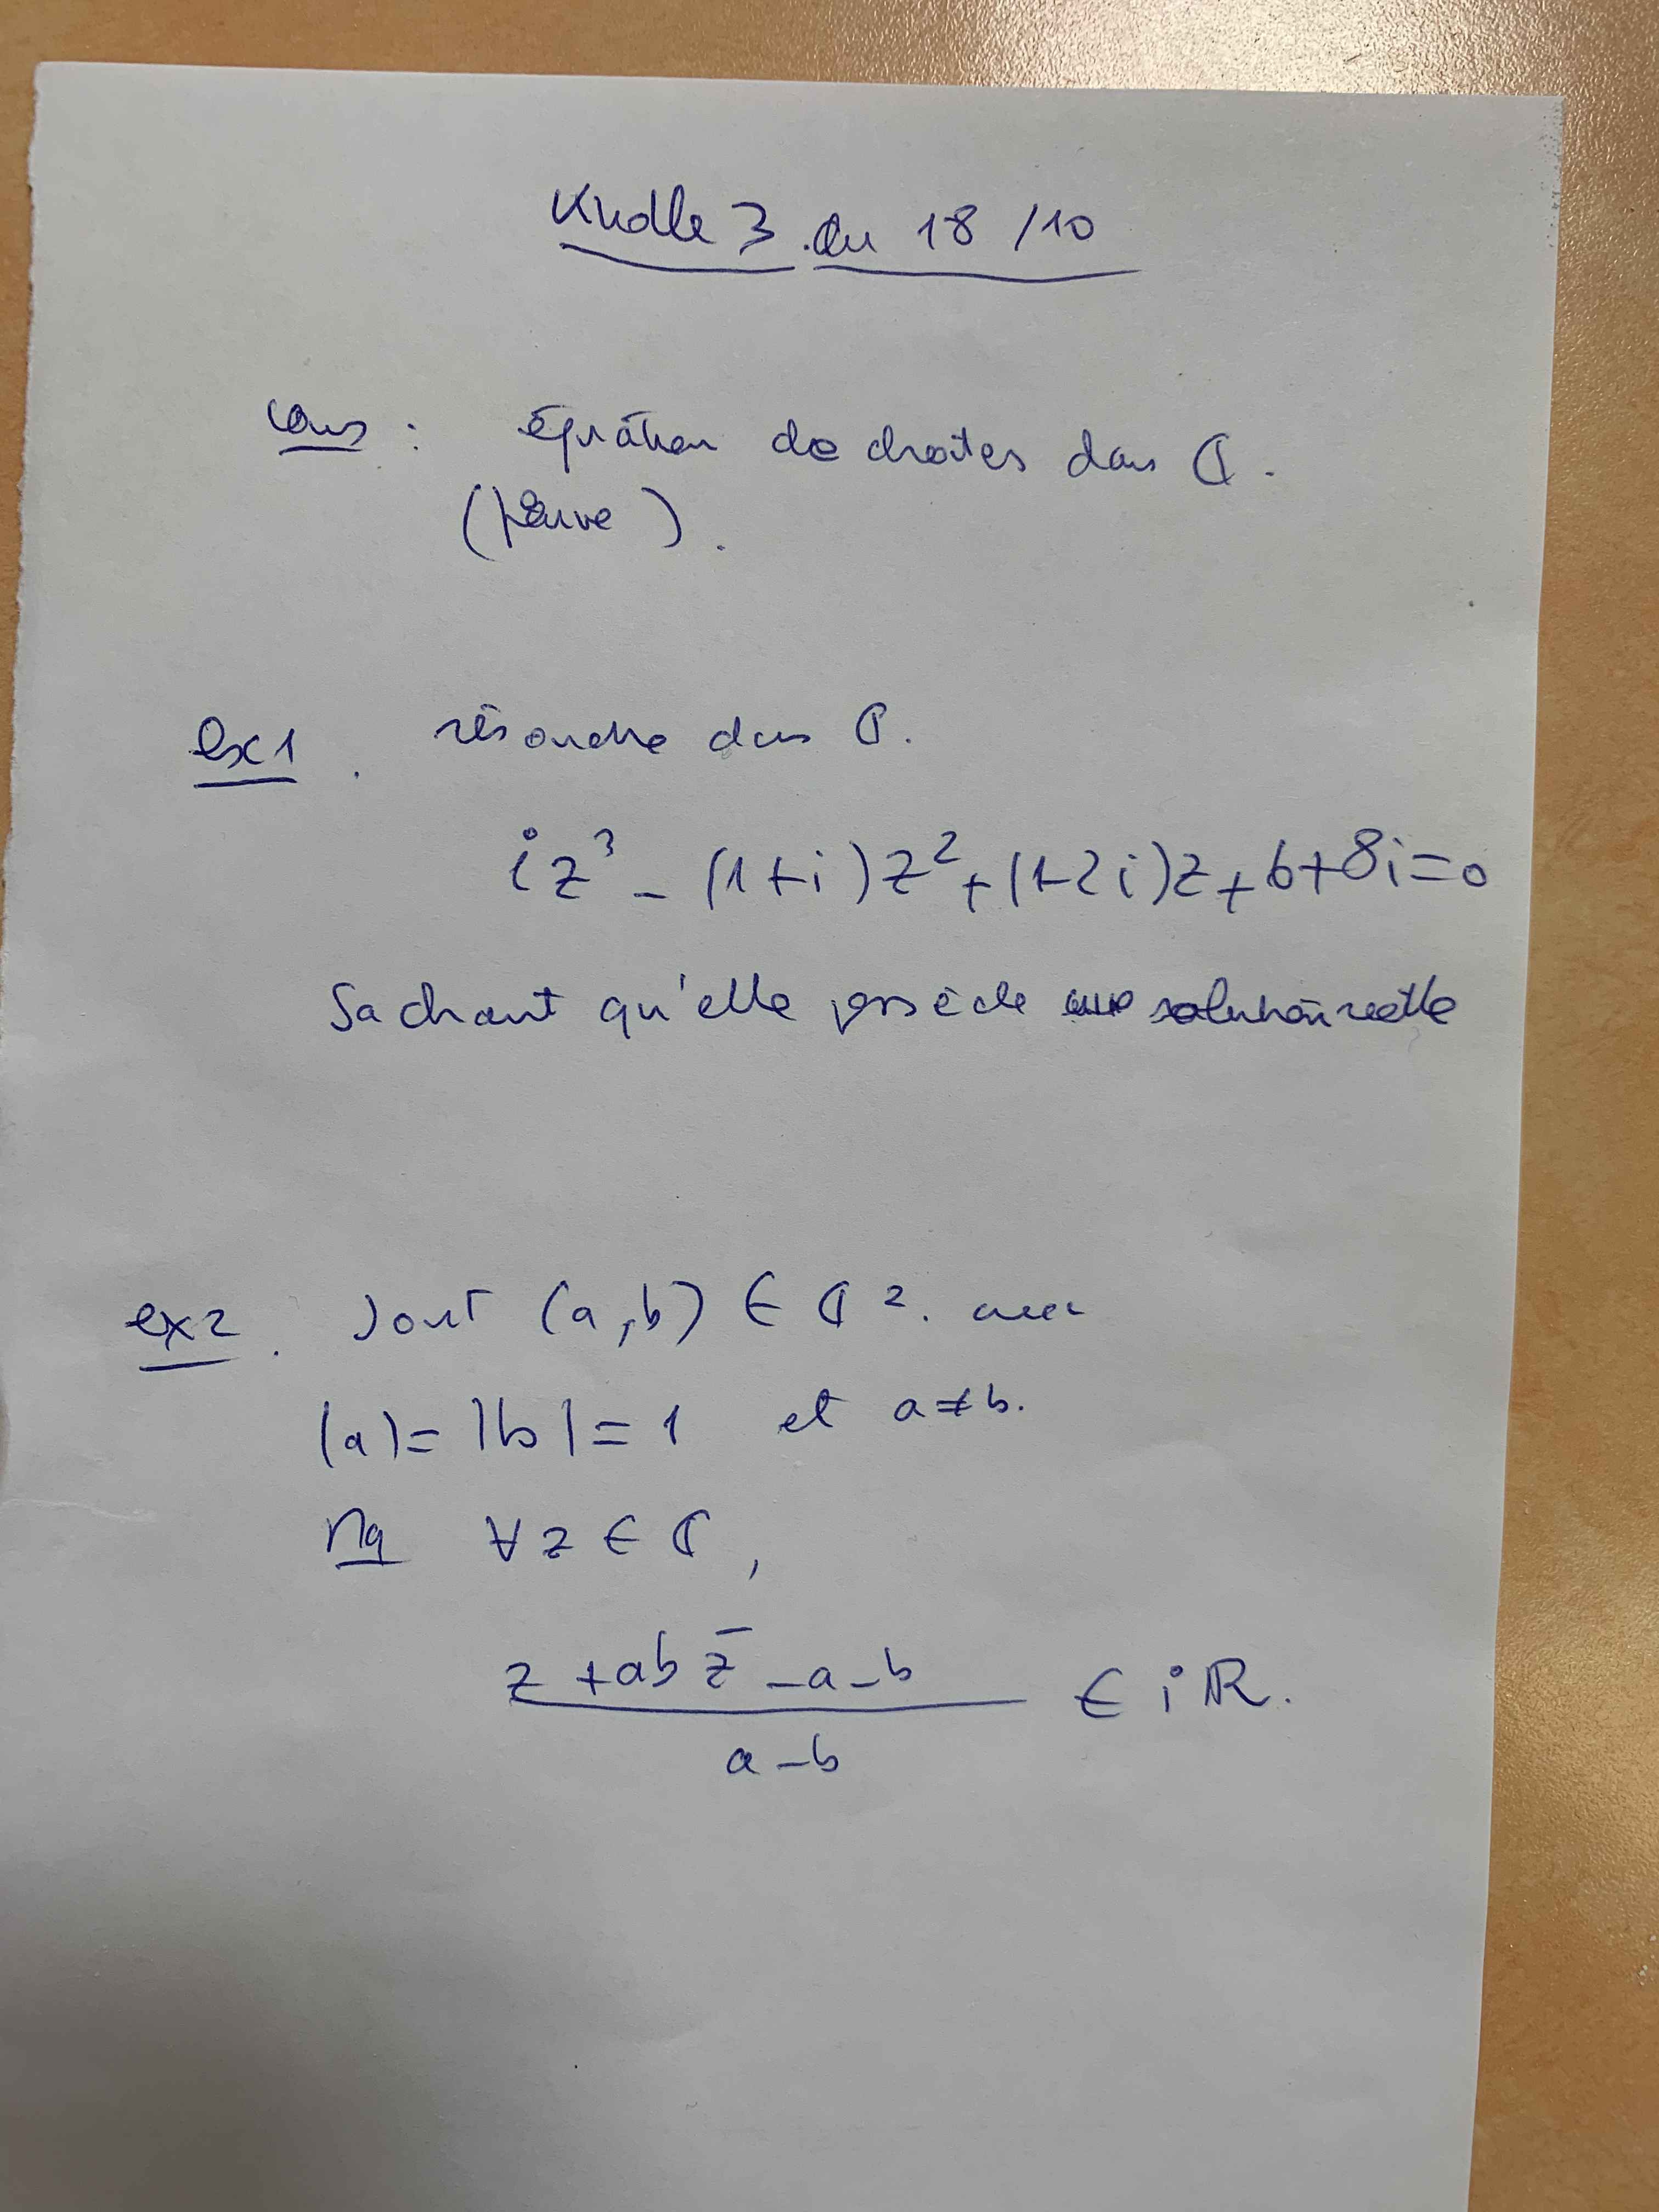 Kholle 3 du 18/10
cours : équation de droites dans ℂ.
(preuve).
ex1. résoudre dans ℂ.
iz³ - (1+i)z² + (1-2i)z + 6+8i=0
Sachant qu'elle possède une solution réelle
ex2. Soit (a,b) ∈ ℂ². avec
|a|=|b|=1 et a≠b.
Mq ∀z∈ℂ,
z + ab z̄ - a - b / a - b ∈ iℝ.